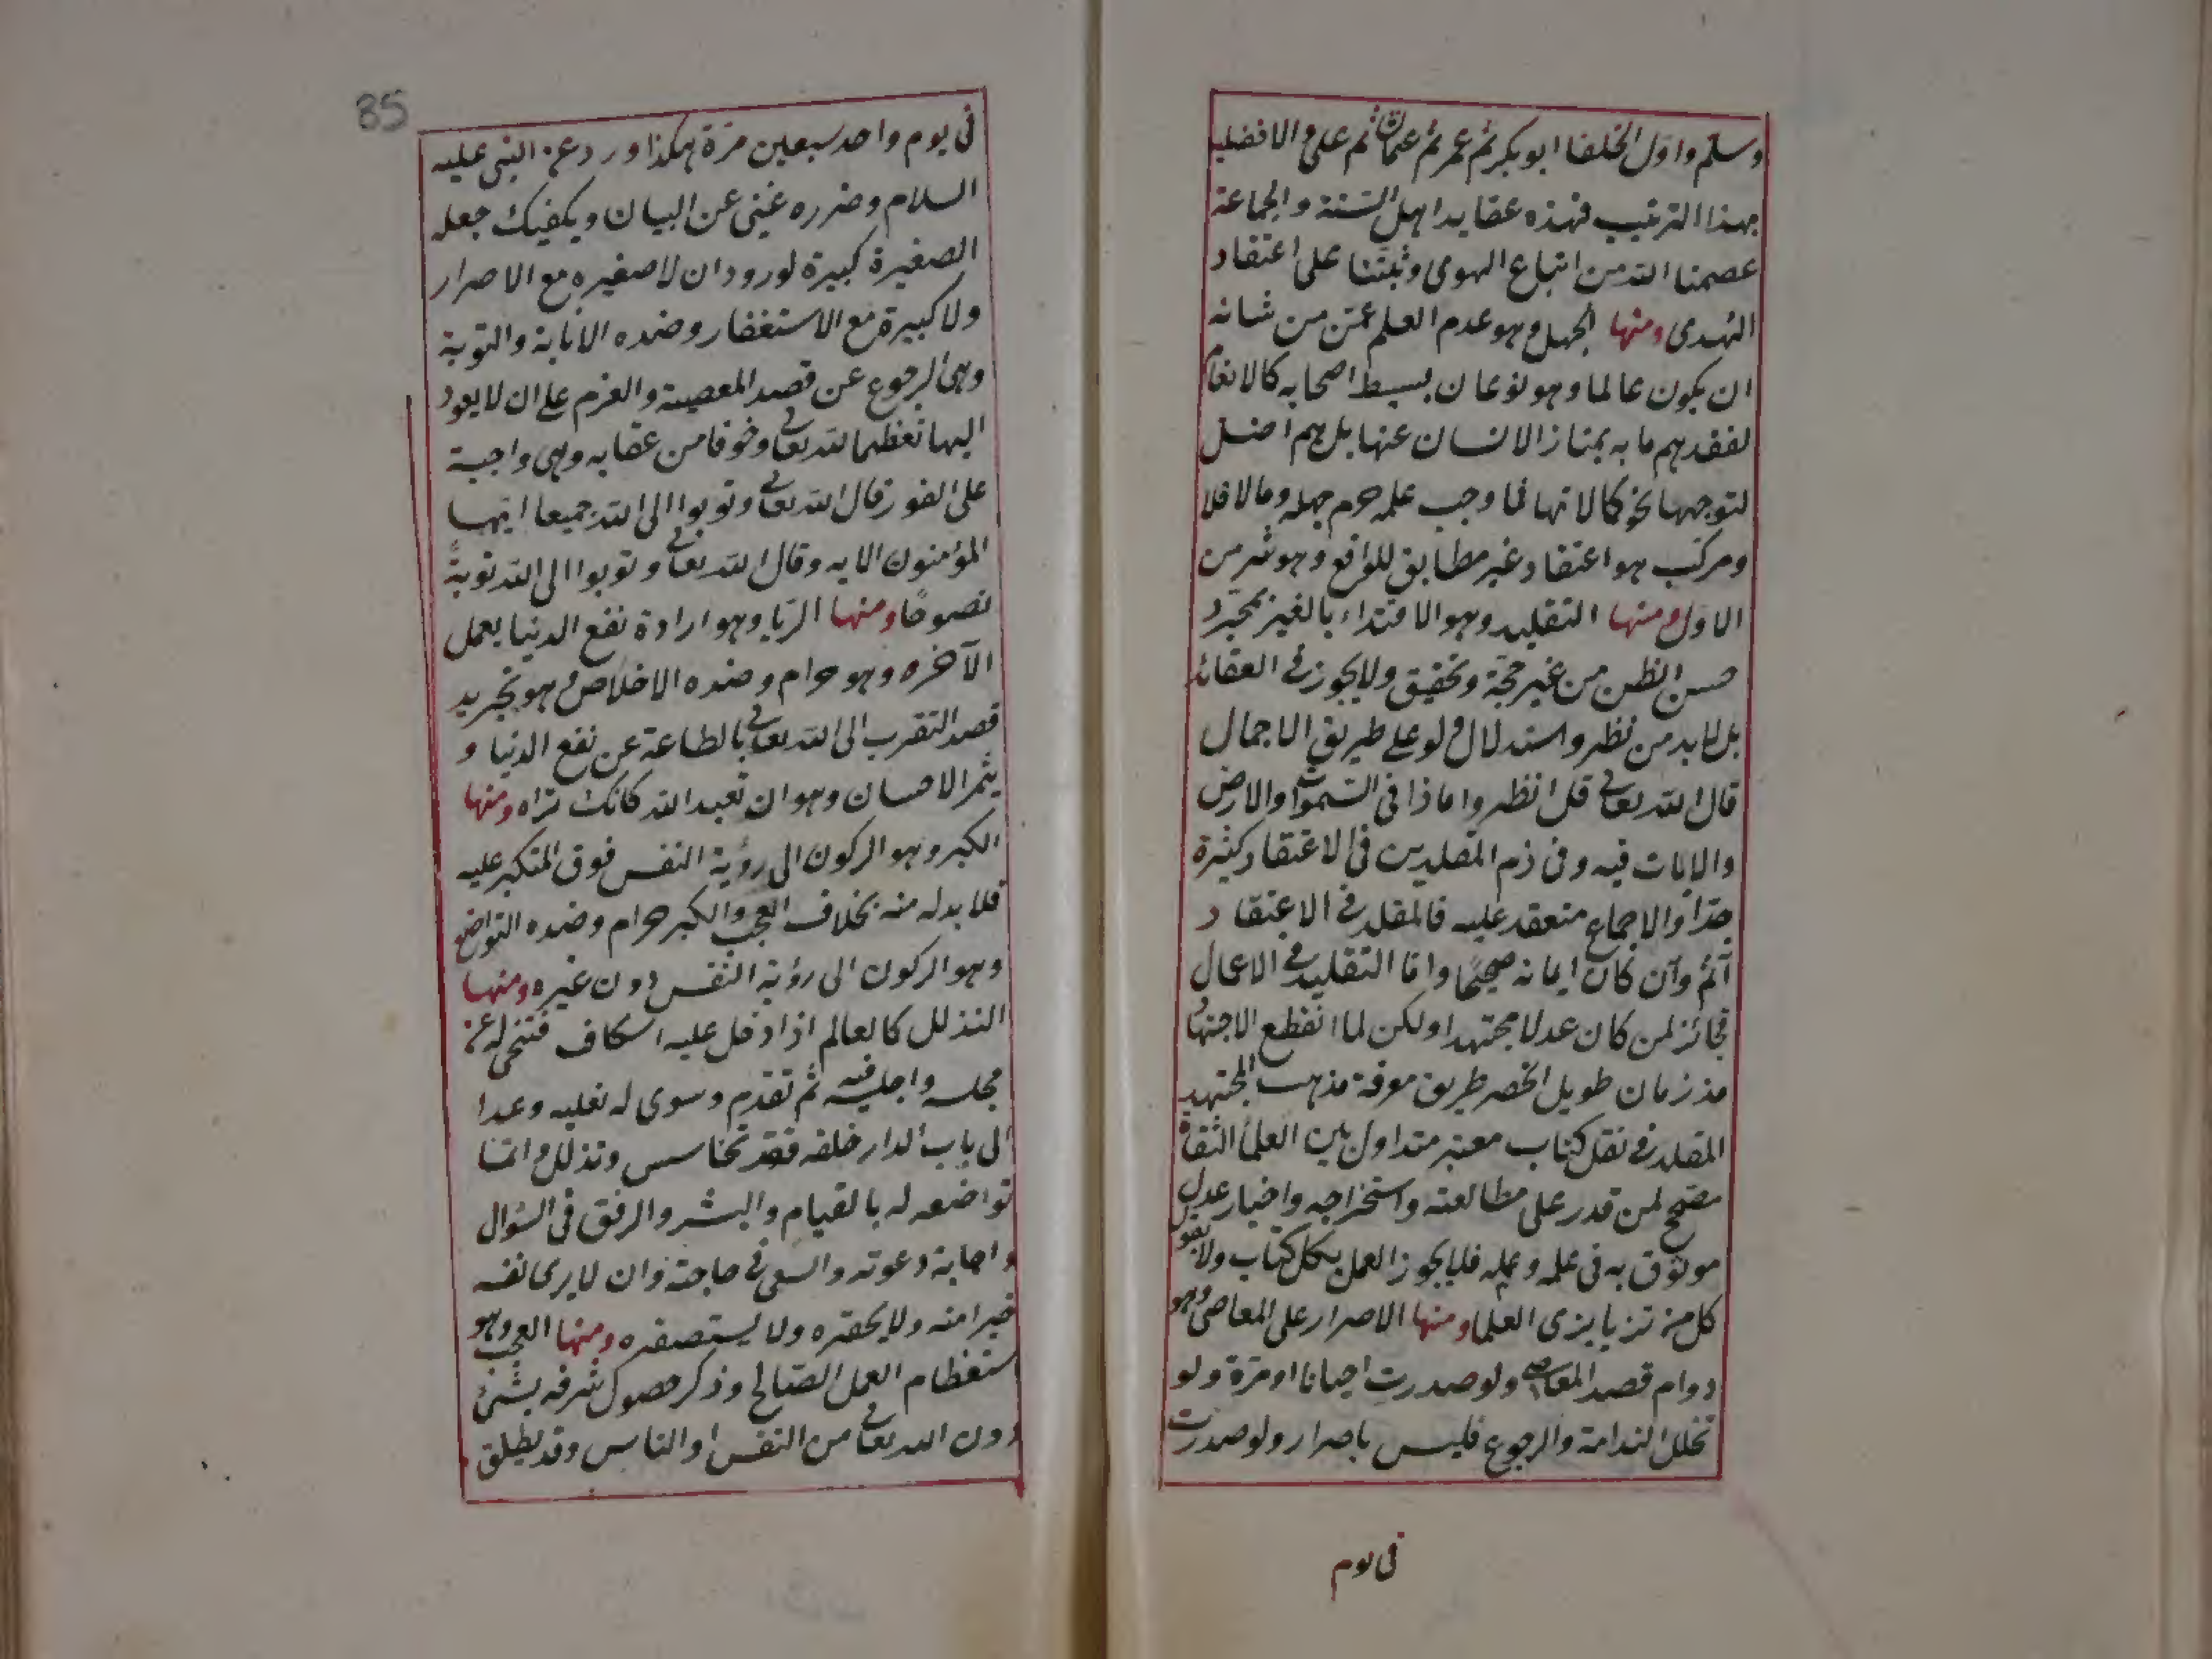 وسلم واول الخلفا ابو بكر ثم عمر ثم عثمان ثم على والافضلية
بهذا الترتيب فهذه عقايد اهل السنة والجماعة
عصمنا الله من اتباع الهوى وثبتنا على اعتقاد
الهدى ومنها الجهل وهو عدم العلم عمن من شانه
ان يكون عالما وهو نوعان بسيط اصحابه كالانعام
لفقدهم ما به يمتاز الانسان عنها بل هم اضل
لتوجهها نحو كمالاتها فما وجب علمه حرم جهله ومالا فلا
ومركب هو اعتقاد غير مطابق للواقع وهو شر من
الاول ومنها التقليد وهو الاقتداء بالغير بمجرد
حسن الظن من غير حجة وتحقيق ولا يجوز فى العقائد
بل لا بد من نظر واستدلال ولو على طريق الاجمال
قال الله تعالى قل انظروا ماذا فى السموات والارض
والايات فيه وفى ذم المقلدين فى الاعتقاد كثيرة
جدا والاجماع منعقد عليه فالمقلد فى الاعتقاد
آثم وان كان ايمانه صحيحا واما التقليد فى الاعمال
فجائز لمن كان عدلا مجتهدا ولكن لما انقطع الاجتهاد
مذ زمان طويل انحصر طريق معرفة مذهب المجتهد
المقلد فى نقل كتاب معتبر متداول بين العلما الثقاة
مصحح لمن قدر على مطالعته واستخراجه واخبار عدل
موثوق به فى علمه وعمله فلا يجوز العمل بكل كتاب ولا بقول
كل من تزيا بزى العلما ومنها الاصرار على المعاصى وهو
دوام قصد المعاصى ولو صدرت احيانا او مرة ولو
تخلل الندامة والرجوع فليس باصرار ولو صدرت
فى يوم
85
فى يوم واحد سبعين مرة هكذا ورد عن النبى عليه
السلام وضرره غنى عن البيان ويكفيك جعله
الصغيرة كبيرة لورود ان لا صغيره مع الاصرار
ولا كبيرة مع الاستغفار وضده الانابة والتوبة
وهى الرجوع عن قصد المعصية والعزم على ان لا يعود
اليها تعظيما لله تعالى وخوفا من عقابه وهى واجبة
على الفور قال الله تعالى وتوبوا الى الله جميعا ايها
المؤمنون الايه وقال الله تعالى وتوبوا الى الله توبة
نصوحا ومنها الريا وهو ارادة نفع الدنيا بعمل
الآخره وهو حرام وضده الاخلاص وهو تجريد
قصد التقرب الى الله تعالى بالطاعة عن نفع الدنيا و
يثمر الاحسان وهو ان تعبد الله كانك تراه ومنها
الكبر وهو الركون الى رؤية النفس فوق المتكبر عليه
فلا بد له منه بخلاف العجب والكبر حرام وضده التواضع
وهو الركون الى رؤية النفس دون غيره ومنها
التذلل كالعالم اذا دخل عليه اسكاف فتنحى له عن
مجلسه واجلسه فيه ثم تقدم وسوى له نعليه وعدا
الى باب الدار خلفه فقد تخاسس وتذلل وانما
تواضعه له بالقيام والبشر والرفق فى السؤال
واجابة دعوته والسعى فى حاجته وان لا يرى نفسه
خيرا منه ولا يحقره ولا يستصغره ومنها العجب وهو
استعظام العمل الصالح وذكر حصول شرفه بشئ
دون الله تعالى من النفس او الناس وقد يطلق